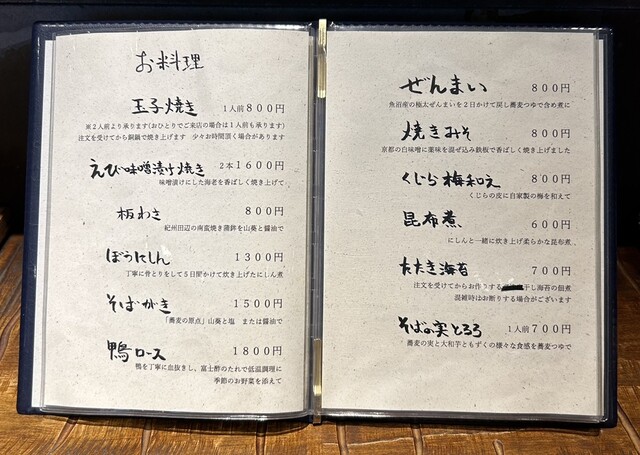 お料理
玉子焼き 1人前800円
※2人前より承ります(おひとりでご来店の場合は1人前も承ります)
注文を受けてから銅鍋で焼き上げます 少々お時間頂く場合があります
えび味噌漬け焼き 2本1600円
味噌漬けにした海老を香ばしく焼き上げて
板わさ 800円
紀州田辺の南蛮焼き蒲鉾を山葵と醤油で
ぼうにしん 1300円
丁寧に骨とりをして5日間かけて炊き上げたにしん煮
そばがき 1500円
「蕎麦の原点」山葵と塩 または醤油で
鴨ロース 1800円
鴨を丁寧に血抜きし、富士酢のたれで低温調理に
季節のお野菜を添えて
ぜんまい 800円
魚沼産の極太ぜんまいを2日かけて戻し蕎麦つゆで含め煮に
焼きみそ 800円
京都の白味噌に薬味を混ぜ込み鉄板で香ばしく焼き上げました
くじら梅和え 800円
くじらの皮に自家製の梅を和えて
昆布煮 600円
にしんと一緒に炊き上げ柔らかな昆布煮
たたき海苔 700円
注文を受けてからお作りする 干し海苔の佃煮
混雑時はお断りする場合がございます
そばの実とろろ 1人前700円
蕎麦の実と大和芋ともずくの様々な食感を蕎麦つゆで